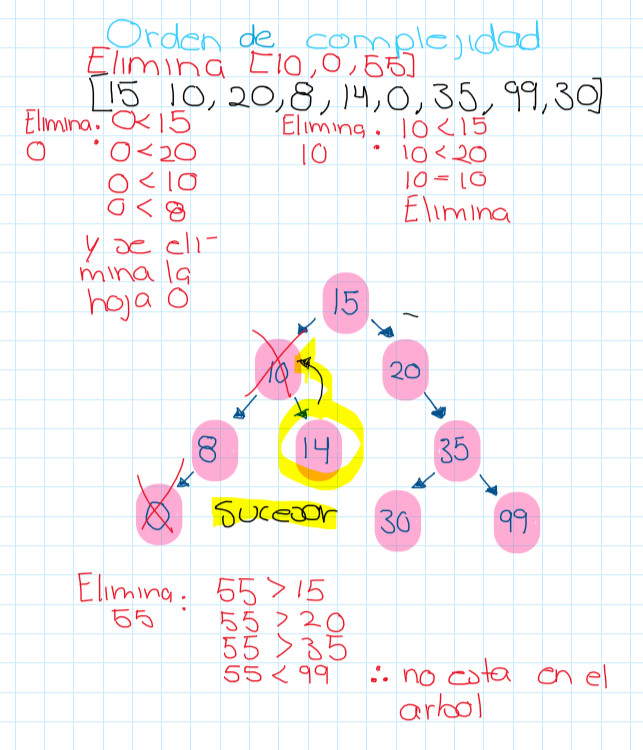 Orden de complejidad
Elimina [10,0,55]
[15 10,20,8,14,0,35,99,30]
Elimina: 0<15
0 0<20
0<10
0<8
y se eli-
mina la
hoja 0
Elimina: 10<15
10 10<20
10=10
Elimina
15
10
20
8
14
35
0
Sucesor
30
99
Elimina: 55>15
55 55>20
55>35
55<99 ∴ no esta en el
arbol